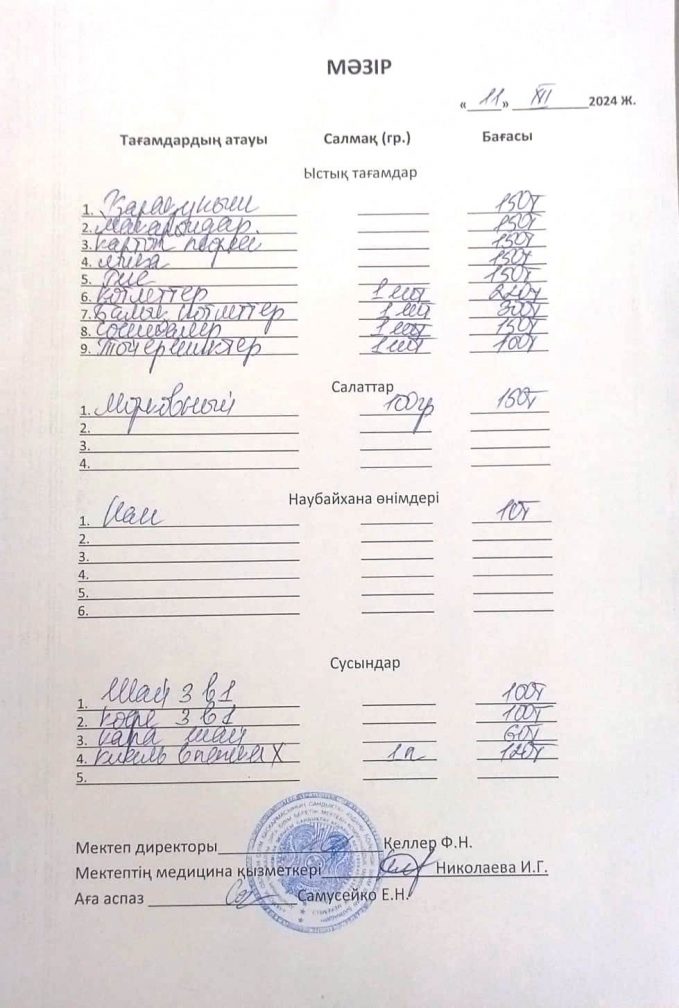 МӘЗІР
« 11 » XII 2024 Ж.
Тағамдардың атауы Салмақ (гр.) Бағасы
Ыстық тағамдар
1. Қарақұным 150т
2. макарондар. 150т
3. картоп пюресі 150т
4. 150т
5. рис 150т
6. котлеттер 1 шт
7. Балық котлеттер 1 шт 300т
8. сосискалар 1 шт 150т
9. 1 шт 100т
Салаттар
1. Морковный 100гр 150т
2.
3.
4.
Наубайхана өнімдері
1. Нан 10т
2.
3.
4.
5.
6.
Сусындар
1. Шай 3 в 1 100т
2. кофе 3 в 1 100т
3. қара шай 60т
4. кисель в пачках 1п 120т
5.
Мектеп директоры Келлер Ф.Н.
Мектептің медицина қызметкері Николаева И.Г.
Аға аспаз Самусейко Е.Н.